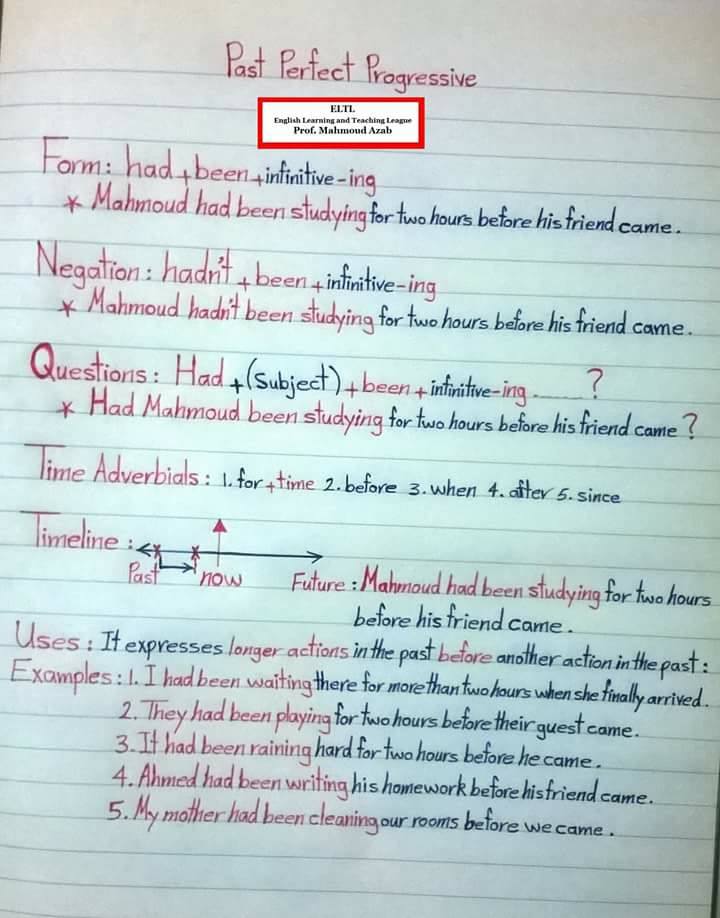 Past Perfect Progressive
ELTL
English Learning and Teaching League
Prof. Mahmoud Azab
Form: had + been + infinitive-ing
* Mahmoud had been studying for two hours before his friend came.
Negation: hadn't + been + infinitive-ing
* Mahmoud hadn't been studying for two hours before his friend came.
Questions: Had + (subject) + been + infinitive-ing ____ ?
* Had Mahmoud been studying for two hours before his friend came?
Time Adverbials: 1. for + time 2. before 3. when 4. after 5. since
Timeline:
Past now Future: Mahmoud had been studying for two hours
before his friend came.
Uses: It expresses longer actions in the past before another action in the past:
Examples: 1. I had been waiting there for more than two hours when she finally arrived.
2. They had been playing for two hours before their guest came.
3. It had been raining hard for two hours before he came.
4. Ahmed had been writing his homework before his friend came.
5. My mother had been cleaning our rooms before we came.